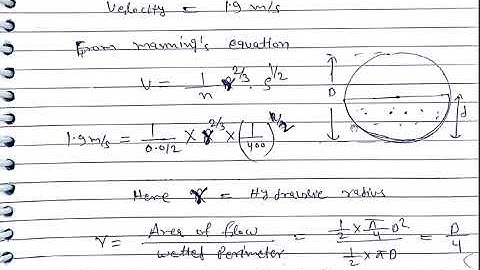 Velocity = 1.9 m/s
From manning's equation
V = 1/n r^2/3 . s^1/2
D
d
1.9 m/s = 1/0.012 × r^2/3 × (1/400)^1/2
Here r = Hydraulic radius
r = Area of flow / wetted perimeter = (1/2 × π/4 D²) / (1/2 × πD) = D/4